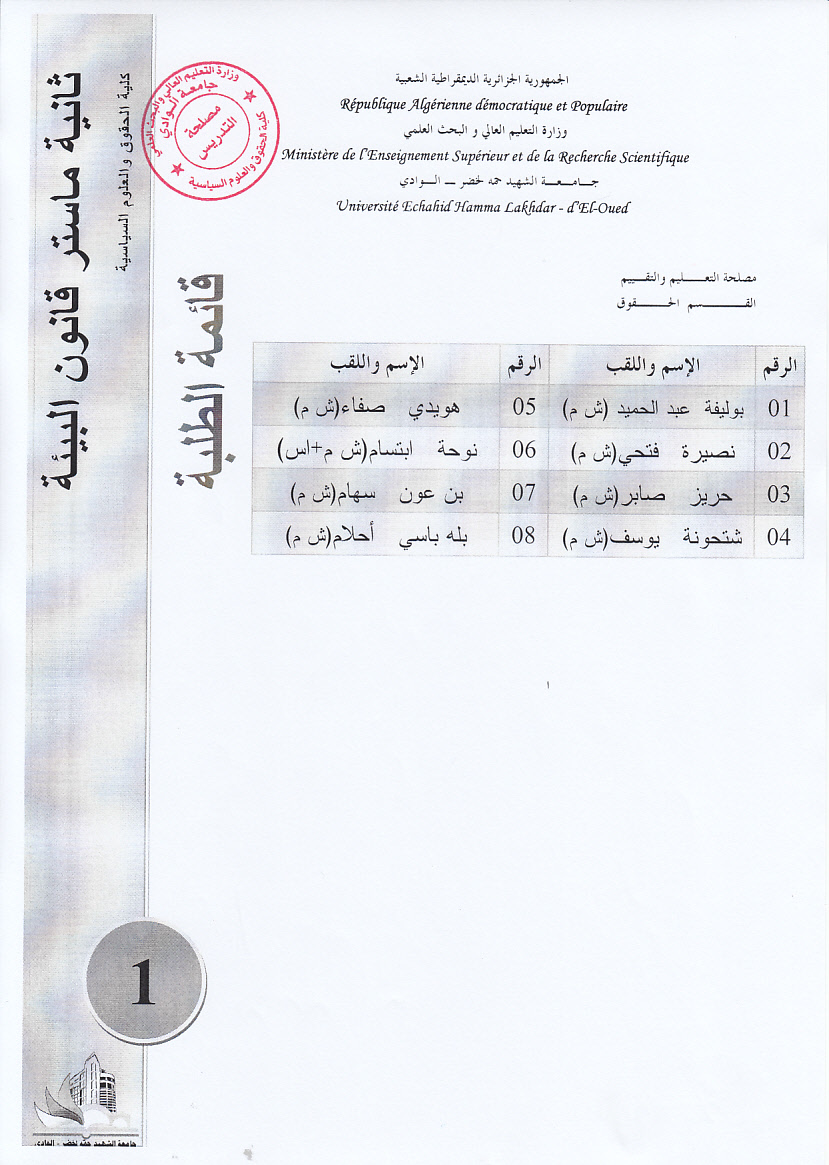 الجمهورية الجزائرية الديمقراطية الشعبية
République Algérienne démocratique et Populaire
وزارة التعليم العالي و البحث العلمي
Ministère de l'Enseignement Supérieur et de la Recherche Scientifique
جـامـعـة الشهيد حمه لخضر – الـوادي
Université Echahid Hamma Lakhdar - d'El-Oued
وزارة التعليم العالي والبحث العلمي
جامعة الوادي
مصلحة
التدريس
كلية الحقوق والعلوم السياسية
مصلحة التعـــليم والتقـــييم
القـــــسم الحـــــقوق
كلية الحقوق والعلوم السياسية
ثانية ماستر قانون البيئة
قائمة الطلبة
الرقم الإسم واللقب الرقم الإسم واللقب
01 بوليفة عبد الحميد (ش م) 05 هويدي صفاء(ش م)
02 نصيرة فتحي(ش م) 06 نوحة ابتسام(ش م+اس)
03 حريز صابر(ش م) 07 بن عون سهام(ش م)
04 شتحونة يوسف(ش م) 08 بله باسي أحلام(ش م)
1
جامعة الشهيد حمّه لخضر - الوادي